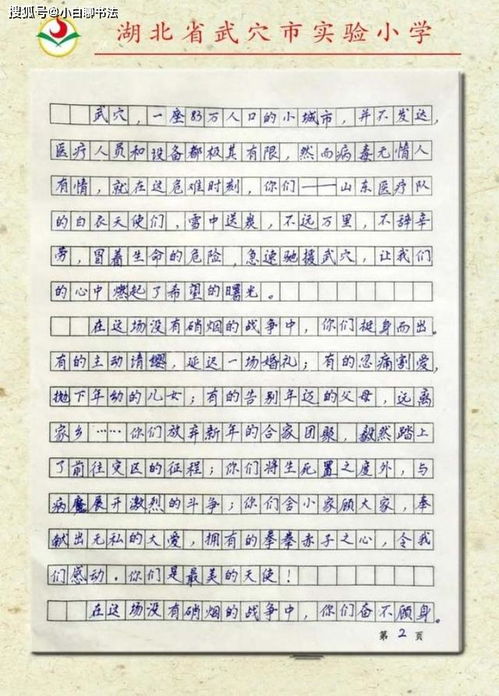 搜狐号@小白聊书法
湖北省武穴市实验小学
武穴，一座83万人口的小城市，并不发达，
医疗人员和设备都极其有限，然而病毒无情人
有情，就在这危难时刻，你们——山东医疗队
的白衣天使们，雪中送炭，不远万里，不辞辛
劳，冒着生命的危险，急速驰援武穴，让我们
的心中燃起了希望的曙光。
在这场没有硝烟的战争中，你们挺身而出。
有的主动请缨，延迟一场婚礼；有的忍痛割爱，
抛下年幼的儿女；有的告别年迈的父母，远离
家乡……你们放弃新年的合家团聚，毅然踏上
了前往灾区的征程；你们将生死置之度外，与
病魔展开激烈的斗争；你们舍小家顾大家，奉
献出无私的大爱，拥有的拳拳赤子之心，令我
们感动。你们是最美的天使！
在这场没有硝烟的战争中，你们奋不顾身。
第2页